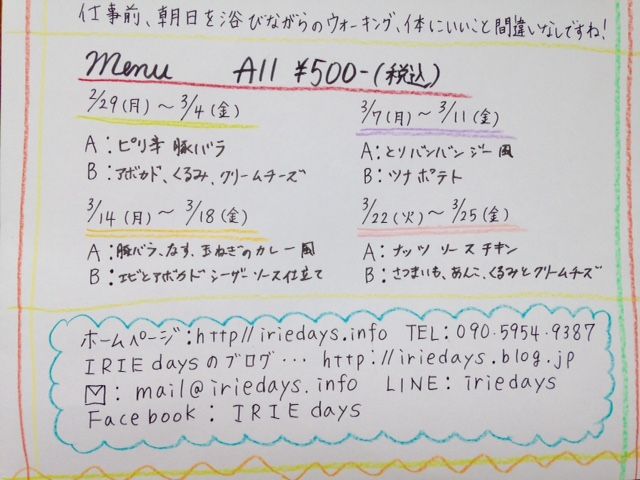 仕事前、朝日を浴びながらのウォーキング、体にいいこと間違いなしですね!
Menu All ¥500-(税込)
2/29(月)～3/4(金)
A:ピリ辛豚バラ
B:アボカド、くるみ、クリームチーズ
3/7(月)～3/11(金)
A:とりバンバンジー風
B:ツナポテト
3/14(月)～3/18(金)
A:豚バラ、なす、玉ねぎのカレー風
B:エビとアボカドシーザーソース仕立て
3/22(火)～3/25(金)
A:ナッツソースチキン
B:さつまいも、あんこ、くるみとクリームチーズ
ホームページ:http//iriedays.info TEL:090-5954-9387
IRIE daysのブログ・・・http://iriedays.blog.jp
:mail@iriedays.info LINE:iriedays
Facebook:IRIE days